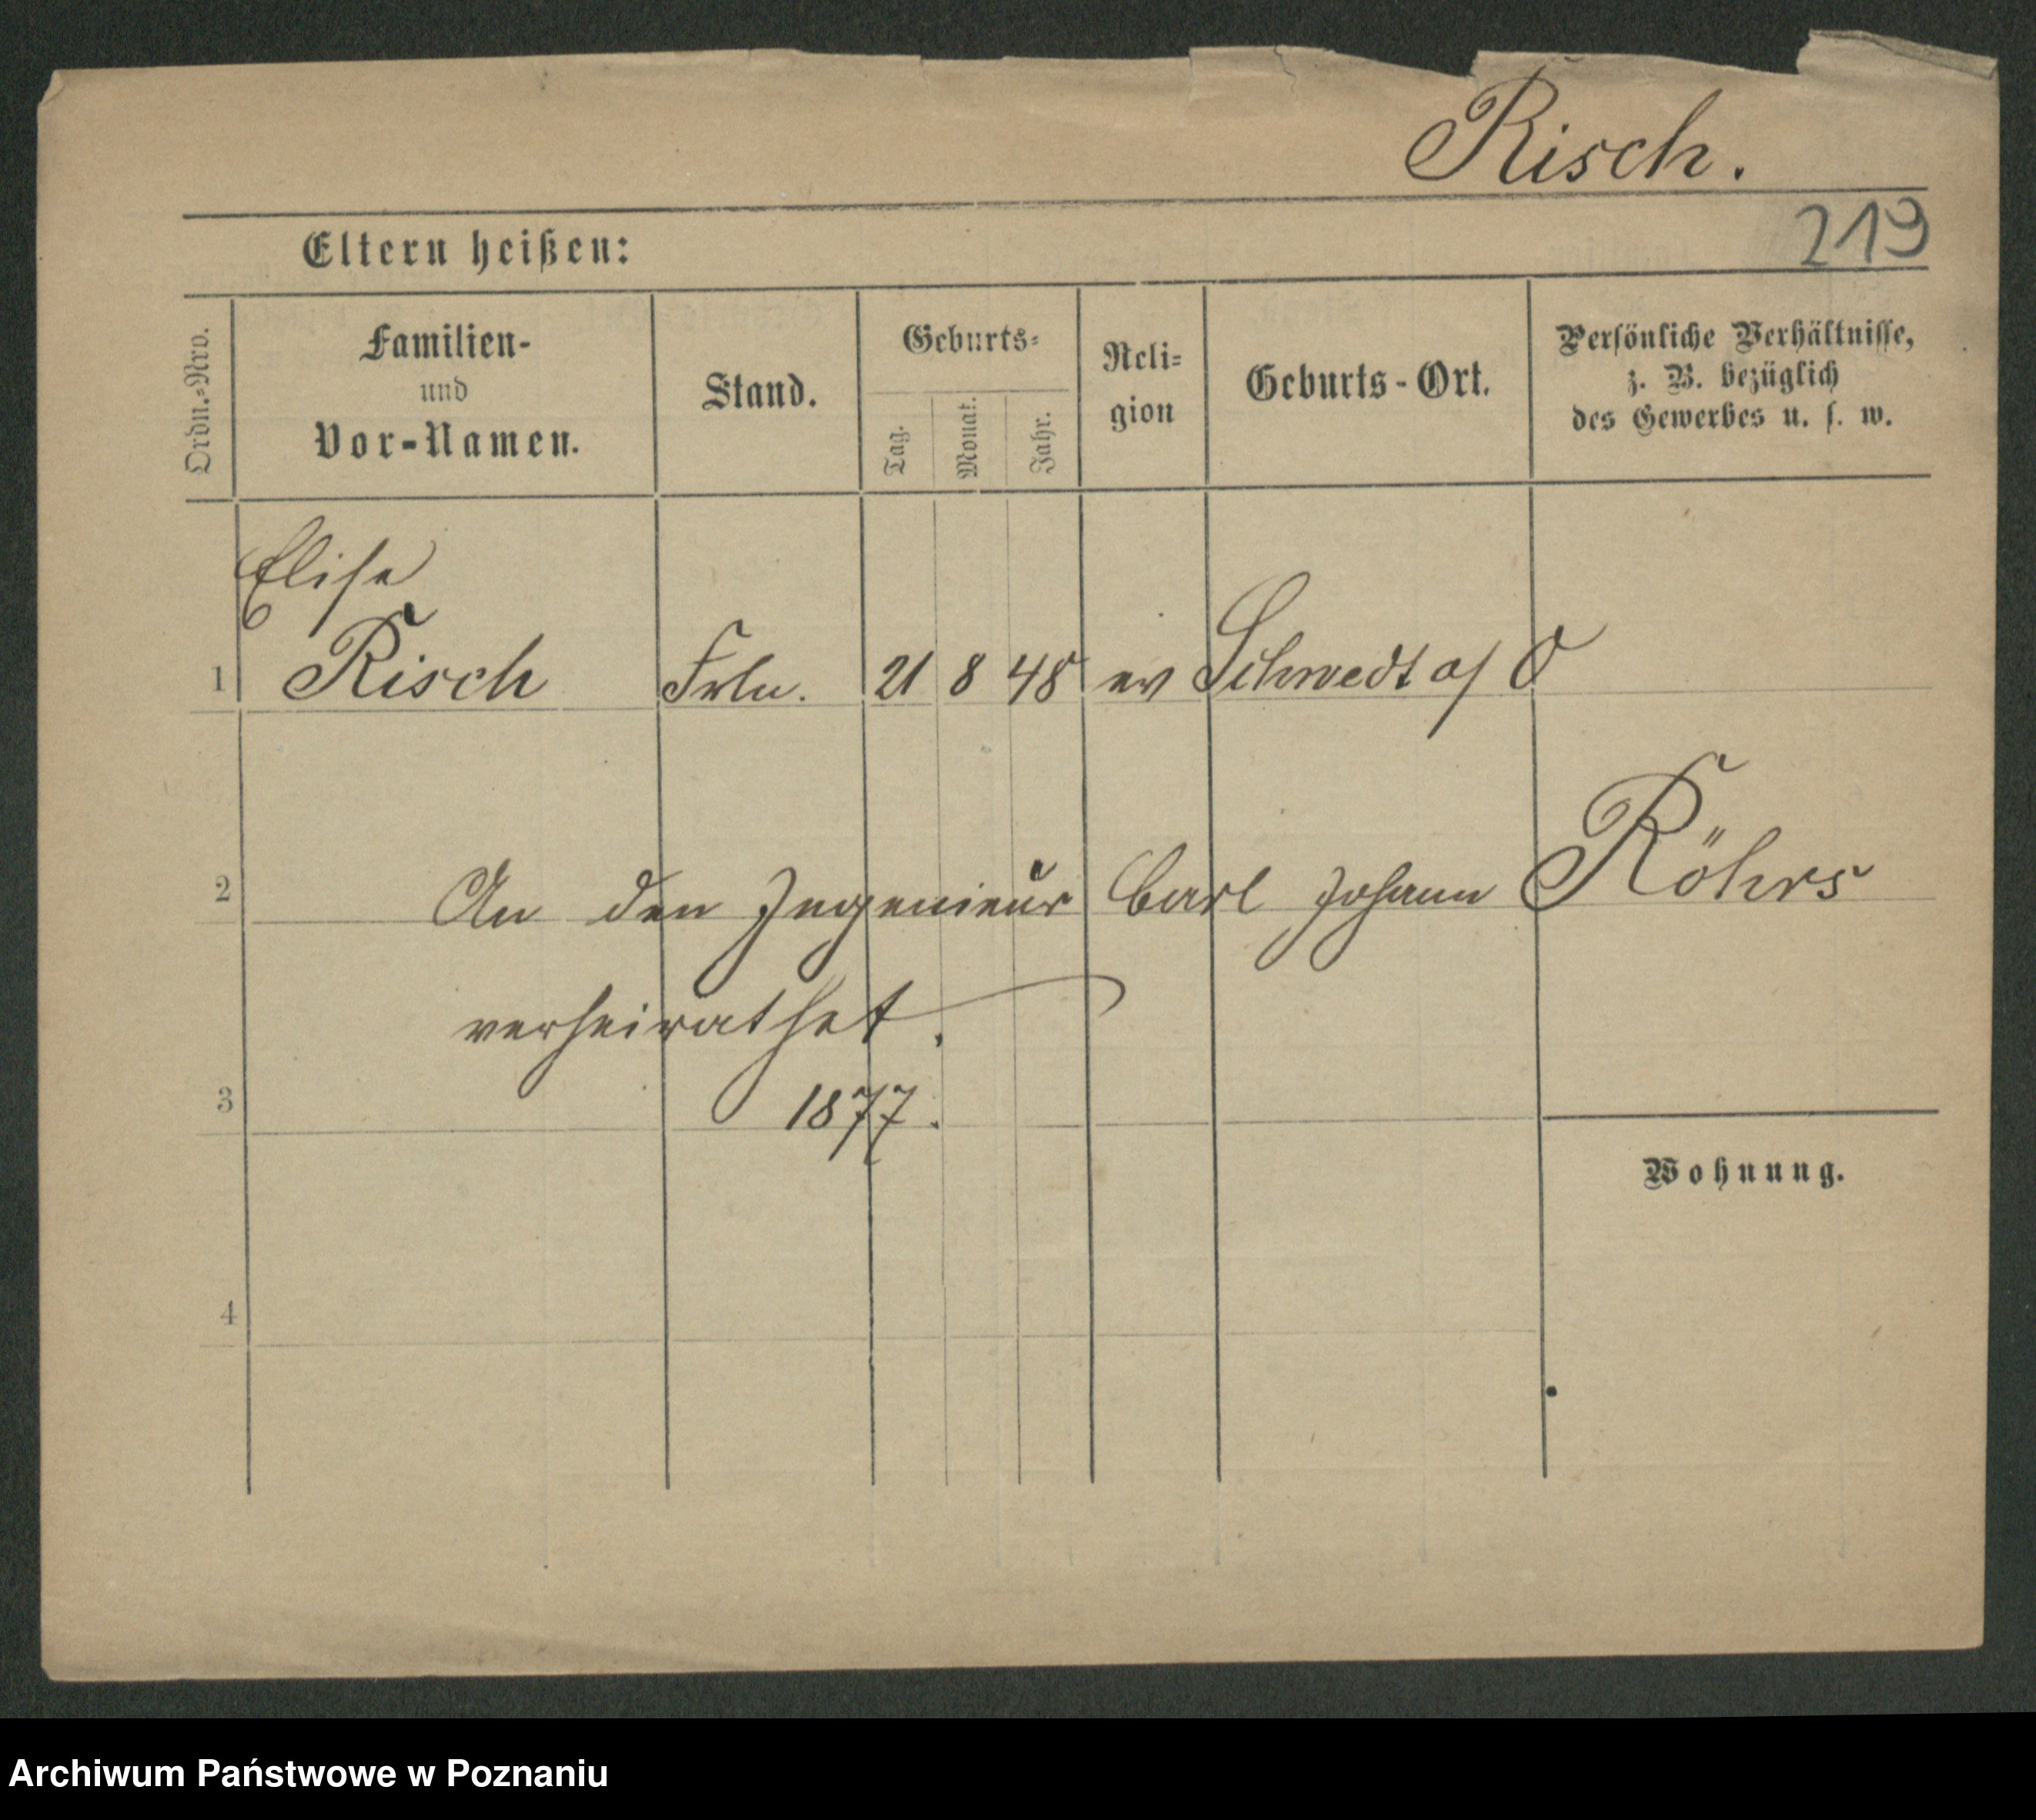 Risch.
219
Eltern heißen:
Ordn.=Nro.
Familien-
und
Vor-Namen.
Stand.
Geburts=
Tag.
Monat.
Jahr.
Reli=
gion
Geburts-Ort.
Persönliche Verhältnisse,
z. B. bezüglich
des Gewerbes u. s. w.
Elise
1 Risch Frln. 21 8 48 ev Schwedt a/O
2 An den Ingenieur Carl Johann Röhrs
verheirathet.
3 1877.
Wohnung.
4
Archiwum Państwowe w Poznaniu